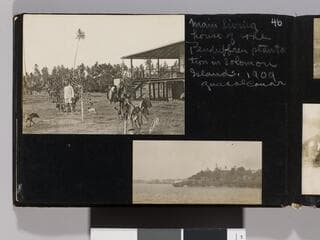 Main living 46
house of the
Penduffren planta
tion in Solomon
Islands. 1909
Guadalcanar